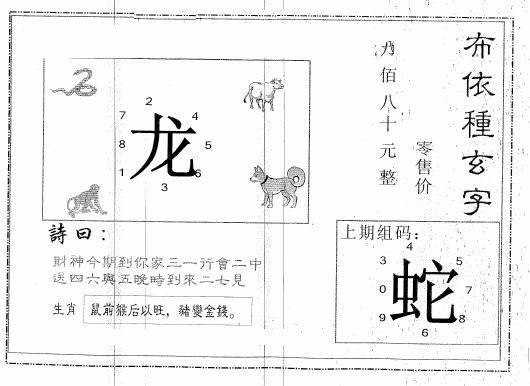 布依種玄字
佰八十元整
零售价
2
7 4
8 龙 5
1 6
3
詩曰：
財神今期到你家三一行會二中
送四六與五晚時到來二七見
生肖 鼠前猴后以旺，豬變金錢。
上期组码：
4
3 5
0 蛇 7
9 8
6